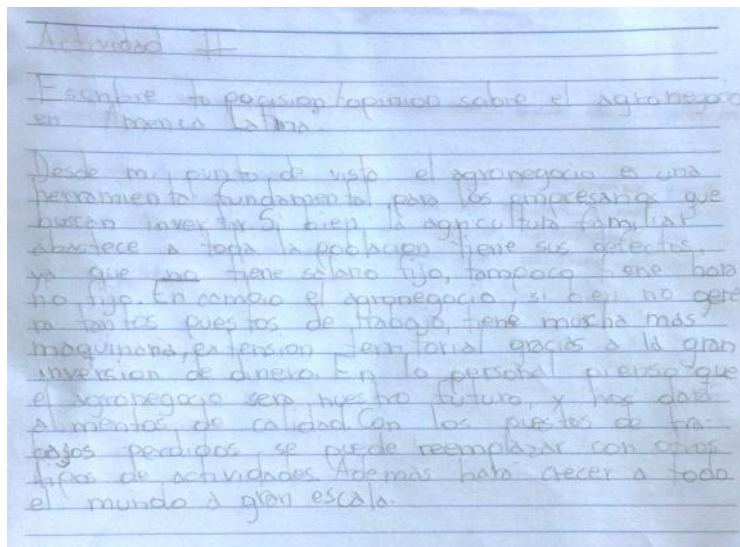 Actividad II
Escribie tu pocision/opinion sobre el agronegocio
en America Latina.
Desde mi punto de vista el agronegocio es una
herramienta fundamental para los empresarios que
buscan invertir. Si bien la agricultura familiar
abastece a toda la poblacion tiene sus defectos,
ya que no tiene salario fijo, tampoco tiene hora
rio fijo. En cambio el agronegocio, si bien no gene
ra tantos puestos de trabajo, tiene mucha más
maquinaria, extension territorial gracias a la gran
inversion de dinero. En lo personal pienso que
el agronegocio sera nuestro futuro, y nos dará
alimentos de calidad. Con los puestos de tra-
bajos perdidos, se puede reemplazar con otros
tipos de actividades. Ademas hara crecer a todo
el mundo a gran escala.